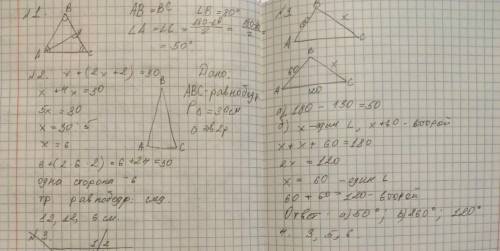 №1.
B
A
C
AB = BC
LB = 80°
LA = LC =
= 50°
№2. x + (2x · 2) = 30
x + 4x = 30
5x = 30
x = 30 : 5
x = 6
6 + (2 · 6 · 2) = 6 + 24 = 30
одна сторона - 6
тр. равнобедр. след.
12, 12, 6 см.
B
A
C
Дано:
ABC - равнобедр.
P = 30 см
3
1/2
№1.
B
x
A
C
B
60
x
A
C
а) 180 - 130 = 50
б) x - один L, x + 60 - второй
x + x + 60 = 180
2x = 120
x = 60 - один L
60 + 60 = 120 - второй
Ответ: а) 50°; б) 60°; 120°
4. 3, 5, 6.